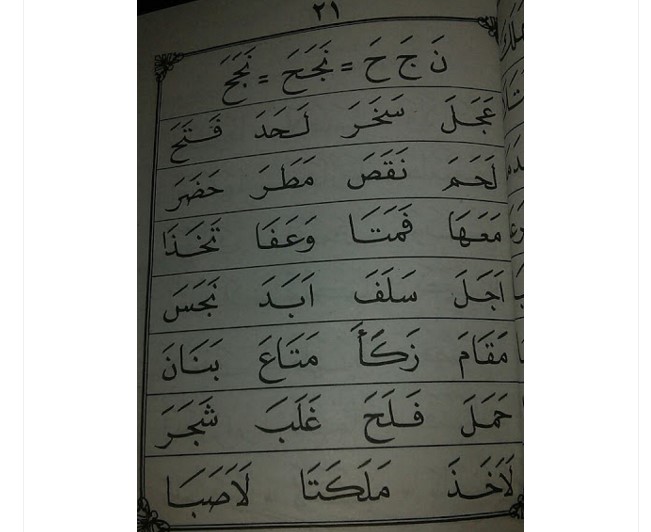 ٢١
نَ جَ حَ = نَجَحَ = نَجَحَ
عَجَلَ سَخَرَ لَحَدَ فَتَحَ
لَحَمَ نَقَصَ مَطَرَ حَضَرَ
مَعَهَا فَمَتَا وَعَفَا تَخَذَا
اَجَلَ سَلَفَ اَبَدَ نَجَسَ
مَقَامَ زَكَأَ مَتَاعَ بَنَانَ
حَمَلَ فَلَحَ غَلَبَ شَجَرَ
لَاَخَذَ مَلَكَتَا لَاَصَبَا